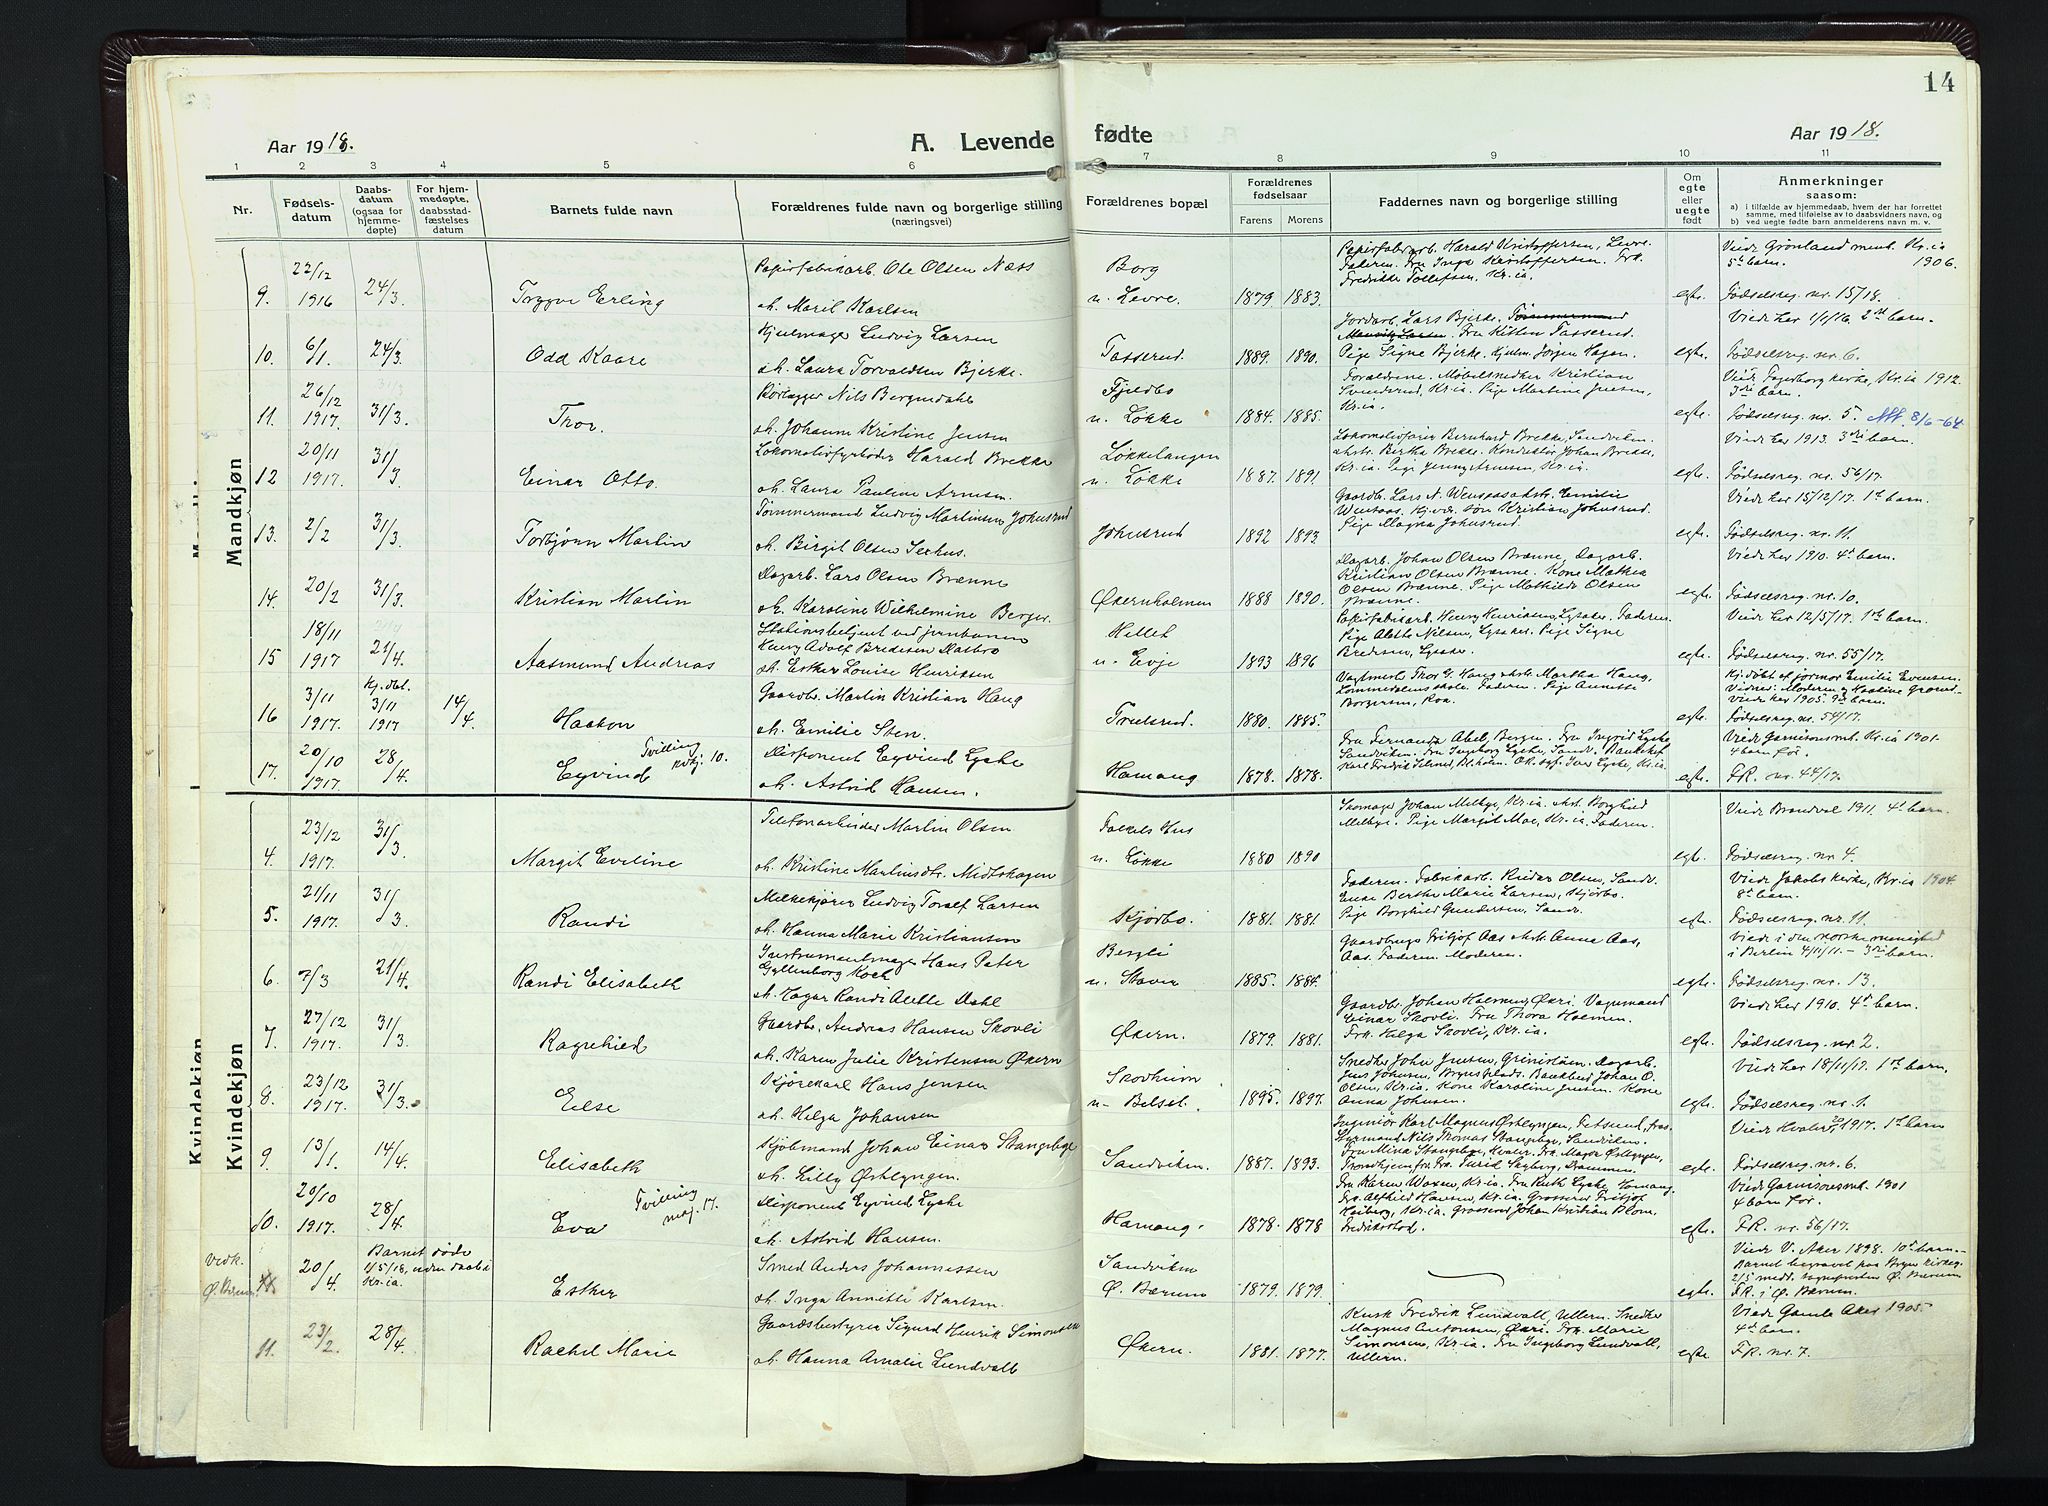 14
Aar 1918.
A. Levende fødte
Aar 1918.
1 2 3 4 5 6 7 8 9 10 11
Nr.
Fødselsdatum
Daabsdatum (ogsaa for hjemmedøpte)
For hjemmedøpte, daabsstadfæstelses datum
Barnets fulde navn
Forældrenes fulde navn og borgerlige stilling (næringsvei)
Forældrenes bopæl
Forældrenes fødselsaar
Farens Morens
Faddernes navn og borgerlige stilling
Om egte eller uegte født
Anmerkninger saasom:
a) i tilfælde av hjemmedaab, hvem der har forrettet samme, med tilføielse av to daabsvidners navn, og
b) ved uegte fødte barn anmelderens navn m. v.
Mandkjøn
9. 22/12 1916 24/3. Trygve Erling
Papirfabrikarb. Ole Olsen Næss
h. Maril Karlsen
Borg
u. Levre. 1879 1883.
Papirfabrarb. Harald Kristoffersen, Levre.
Faderen. Fru Inga Kristoffersen. Frk.
Fredrikke Tollefsen, Kr.ia.
egte.
Viede Grønland menh. Kr.ia
5te barn. 1906.
Fødselsreg. nr. 15/18.
10. 6/1. 24/3. Odd Kaare
Hjulmager Ludvig Larsen
h. Laura Torvaldsen Bjerke.
Tasserud. 1889. 1890.
Jordarb. Lars Bjerke.
Fru Kitlen Tasserud.
Pige Signe Bjerke. Hjulm. Jørgen Hagen.
egte.
Viede her 1/1/16. 2det barn.
Fødselsreg. nr. 6.
11. 26/12 1917. 31/3. Thor.
Rørlægger Nils Bergendahl
h. Johanne Kristine Jensen
Fjeldbo
u. Løkke 1884. 1885.
Forældrene. Møbelsnedker Kristian
Svendsrud, Kr.ia. Pige Martine Jensen,
Kr.ia.
egte.
Viede Fagerborg kirke, Kr.ia 1912.
3die barn.
Fødselsreg. nr. 5. 8/6-64
12 20/11 1917. 31/3. Einar Otto.
Lokomotivfyrbøder Harald Brekke
h. Laura Pauline Arnesen.
Løkkelangen
u. Løkke 1887. 1891
Lokomotivfører Bernhard Brekke, Sandviken.
Hstr. Bertha Brekke. Konduktør Johan Brekke,
Kr.ia. Pige Jenny Arnesen, Kr.ia.
egte.
Viede her 1913. 3die barn.
Fødselsreg. nr. 56/17.
13. 2/2 31/3. Torbjørn Martin
Tømmermand Ludvig Martinsen Johnsrud
h. Birgit Olsen Sexhus.
Johnsrud 1892 1893
Gaardb. Lars N. Wensaas & hstr. Emilie
Wensaas. Kjør. søn Kristian Johnsrud.
Pige Magna Johnsrud.
egte.
Viede her 15/12/17. 1ste barn.
Fødselsreg. nr. 11.
14. 20/2 31/3. Kristian Martin
Dagarb. Lars Olsen Brænne
h. Karoline Wilhelmine Berger.
Økernholmen 1888 1890.
Dagarb. Johan Olsen Brænne, Dagarb.
Kristian Olsen Brænne. Kone Mathea
Olsen Brænne. Pige Mathilde Olsen
Brænne.
egte.
Viede her 1910. 4de barn.
Fødselsreg. nr. 10.
15 18/11 1917 21/4. Aasmund Andreas
Stationsbetjent ved jernbanen
Henry Adolf Bredesen Dalbro
h. Esther Louise Henriksen
Hellet
u. Evje 1893 1896
Papirfabrikarb. Henry Henriksen, Lysaker. Faderen.
Pige Aleth Nilsen, Lysaker. Pige Signe
Bredesen, Lysaker.
egte.
Viede her 12/5/17. 1ste barn.
Fødselsreg. nr. 55/17.
16 3/11 1917. Hj. dbt. 3/11 1917 14/4. Haakon
Gaardbr. Martin Kristian Haug
h. Emilie Sten.
Trulsrud. 1880. 1885.
Vagtmester Thor G. Haug & hstr. Martha Haug,
Lommedalens skole. Faderen. Pige Annette
Borgersen, Roa.
egte.
Hj. døbt af jormor Emilie Evensen.
Vidner: Moderen og
Viede her 1905. 9de barn.
Fødselsreg. nr. 54/17.
17. 20/10 1917. 28/4. Eyvind Tvilling kvkj. 10.
Disponent Eyvind Lyche
h. Astrid Hansen.
Hamang 1878. 1878.
Fru Fernanda Abel, Bergen. Fru Ingrid Lyche
Sandviken. Fru Ingeborg Lyche, Sandv. Bankchef
Iver Lyche, Kr.ia.
egte.
Viede Garnisonsmh. Kr.ia 1901.
4 barn før.
F.R. nr. 44/17.
Kvindekjøn
4. 23/12 1917. 31/3. Margit Eveline
Telefonarbeider Martin Olsen
h. Kristine Martinsdtr. Midtskogen
Folkets Hus
u. Løkke 1880 1890
Skomager Johan Melbye, Kr.ia. Hstr. Borghild
Melbye. Pige Margit Moe, Kr.ia. Faderen.
egte.
Viede Brandval 1911. 4de barn.
Fødselsreg. nr. 4.
5. 21/11 1917. 31/3. Randi
Melkekjører Ludvig Toralf Larsen
h. Hanna Marie Kristiansen
Skjørbo. 1881. 1881.
Faderen. Fabrikarb. Reidar Olsen, Sandv.
Enke Berthe Marie Larsen, Kjørbo.
Pige Borghild Gundersen, Sandv.
egte.
Viede Jakobs kirke, Kr.ia 1904.
8de barn.
Fødselsreg. nr. 11.
6. 7/3 21/4. Randi Elisabeth
Instrumentmager Hans Peter
Gyllenborg Koch
h. Hagar Randi Alette Dahl
Bergli
u. Stover 1885. 1884.
Gaardbruger Fritjof Aas & hstr. Anna Aas,
Aas. Faderen. Moderen.
egte.
Viede i den norske menighed
i Berlin 4/11/11. - 3die barn.
Fødselsreg. nr. 13.
7. 27/12 1917. 31/3. Ragnhild
Gaardbr. Andreas Hansen Skovli
h. Karen Julie Kristensen Økern
Økern. 1879. 1881.
Gaardbr. Johan Holmen, Økri. Vognmand
Einar Skovli. Fru Thora Holmen.
Frk. Helga Skovli, Kr.ia.
egte.
Viede her 1910. 4de barn.
Fødselsreg. nr. 2.
8. 23/12 1917. 31/3. Else
Kjørekarl Hans Jensen
h. Helga Johansen
Skovheim
u. Belset. 1895. 1897.
Smedker John Jensen, Grinistuen. Dagarb.
Jens Johnsen, Brynsplads. Bankbud Johan O.
Olsen, Kr.ia. Kone Karoline Jensen. Kone
Anna Johnsen.
egte.
Viede her 18/11/17. 1ste barn.
Fødselsreg. nr. 1.
9. 13/1. 14/4. Elisabeth
Kjøbmand Johan Einar Stangebye
h. Lilly Østlyngen.
Sandviken. 1887. 1893.
Ingeniør Karl Magnus Østlyngen, Fetsund,
Styrmand Nils Thomas Stangebye, Sandviken.
Fru Mina Stangebye, Hvaler. Fru Major Østlyngen,
Trondhjem
egte.
Viede Hvaler 1917. 1ste barn
Fødselsreg. nr. 6.
10. 20/10 1917. 28/4. Eva Tvilling mkj. 17.
Disponent Eyvind Lyche
h. Astrid Hansen.
Hamang. 1878. 1878
Fru Karen Waxen, Kr.ia. Fru Ruth Lyche Hamang.
Fru Alfhild Hansen, Kr.ia. Grosserer Fritjof
Heiberg, Kr.ia. Grosserer Johan Kristian Blom,
Fredrikstad.
egte.
Viede Garnisonsmh. 1901
4 barn før.
F.R. nr. 56/17.
Vedk. Ø. Bærum 20/4 Barnet døde 1/5/18, uden daab i Kr.ia. Esther
Smed Anders Johannessen
h. Inga Annette Karlsen.
Sandviken
Ø. Bærum 1879. 1879.
egte.
Viede V. Aker 1898. 10de barn.
Barnet begravet paa Bryns kirkeg.
2/5 medd. sognepresten Ø. Bærum
F.R. i Ø. Bærum.
11. 23/2. 28/4. Rachel Marie
Gaardsbestyrer Sigurd Henrik Simonsen
h. Hanna Amalie Lundvall
Økern. 1881. 1877.
Kusk Fredrik Lundvall, Ullern. Snedker
Magnus Antonsen, Økri. Frk. Marie
Simonsen, Kr.ia. Fru Ingeborg Lundvall,
Ullern.
egte
Viede Gamle Aker 1905
4de barn.
F.R. nr. 7.